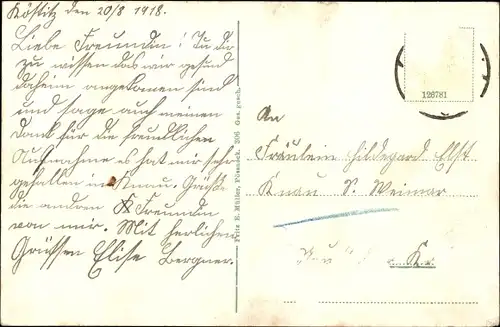 Köstitz den 20/8 1918.
Liebe Freundin! Tu dir
zu wissen das wir gesund
daheim angekommen sind
und sage auch meinen
Dank für die freundlichen
Aufnahme es hat mir sehr
gefallen in Knau. Grüße
die andren Freundin
von mir. Mit herlichen
Grüßen Elise Bergner.
Fritz E. Müller,
Ges. gesch.
126781
An
Fräulein Hildegard Elst
Knau S. Weimar